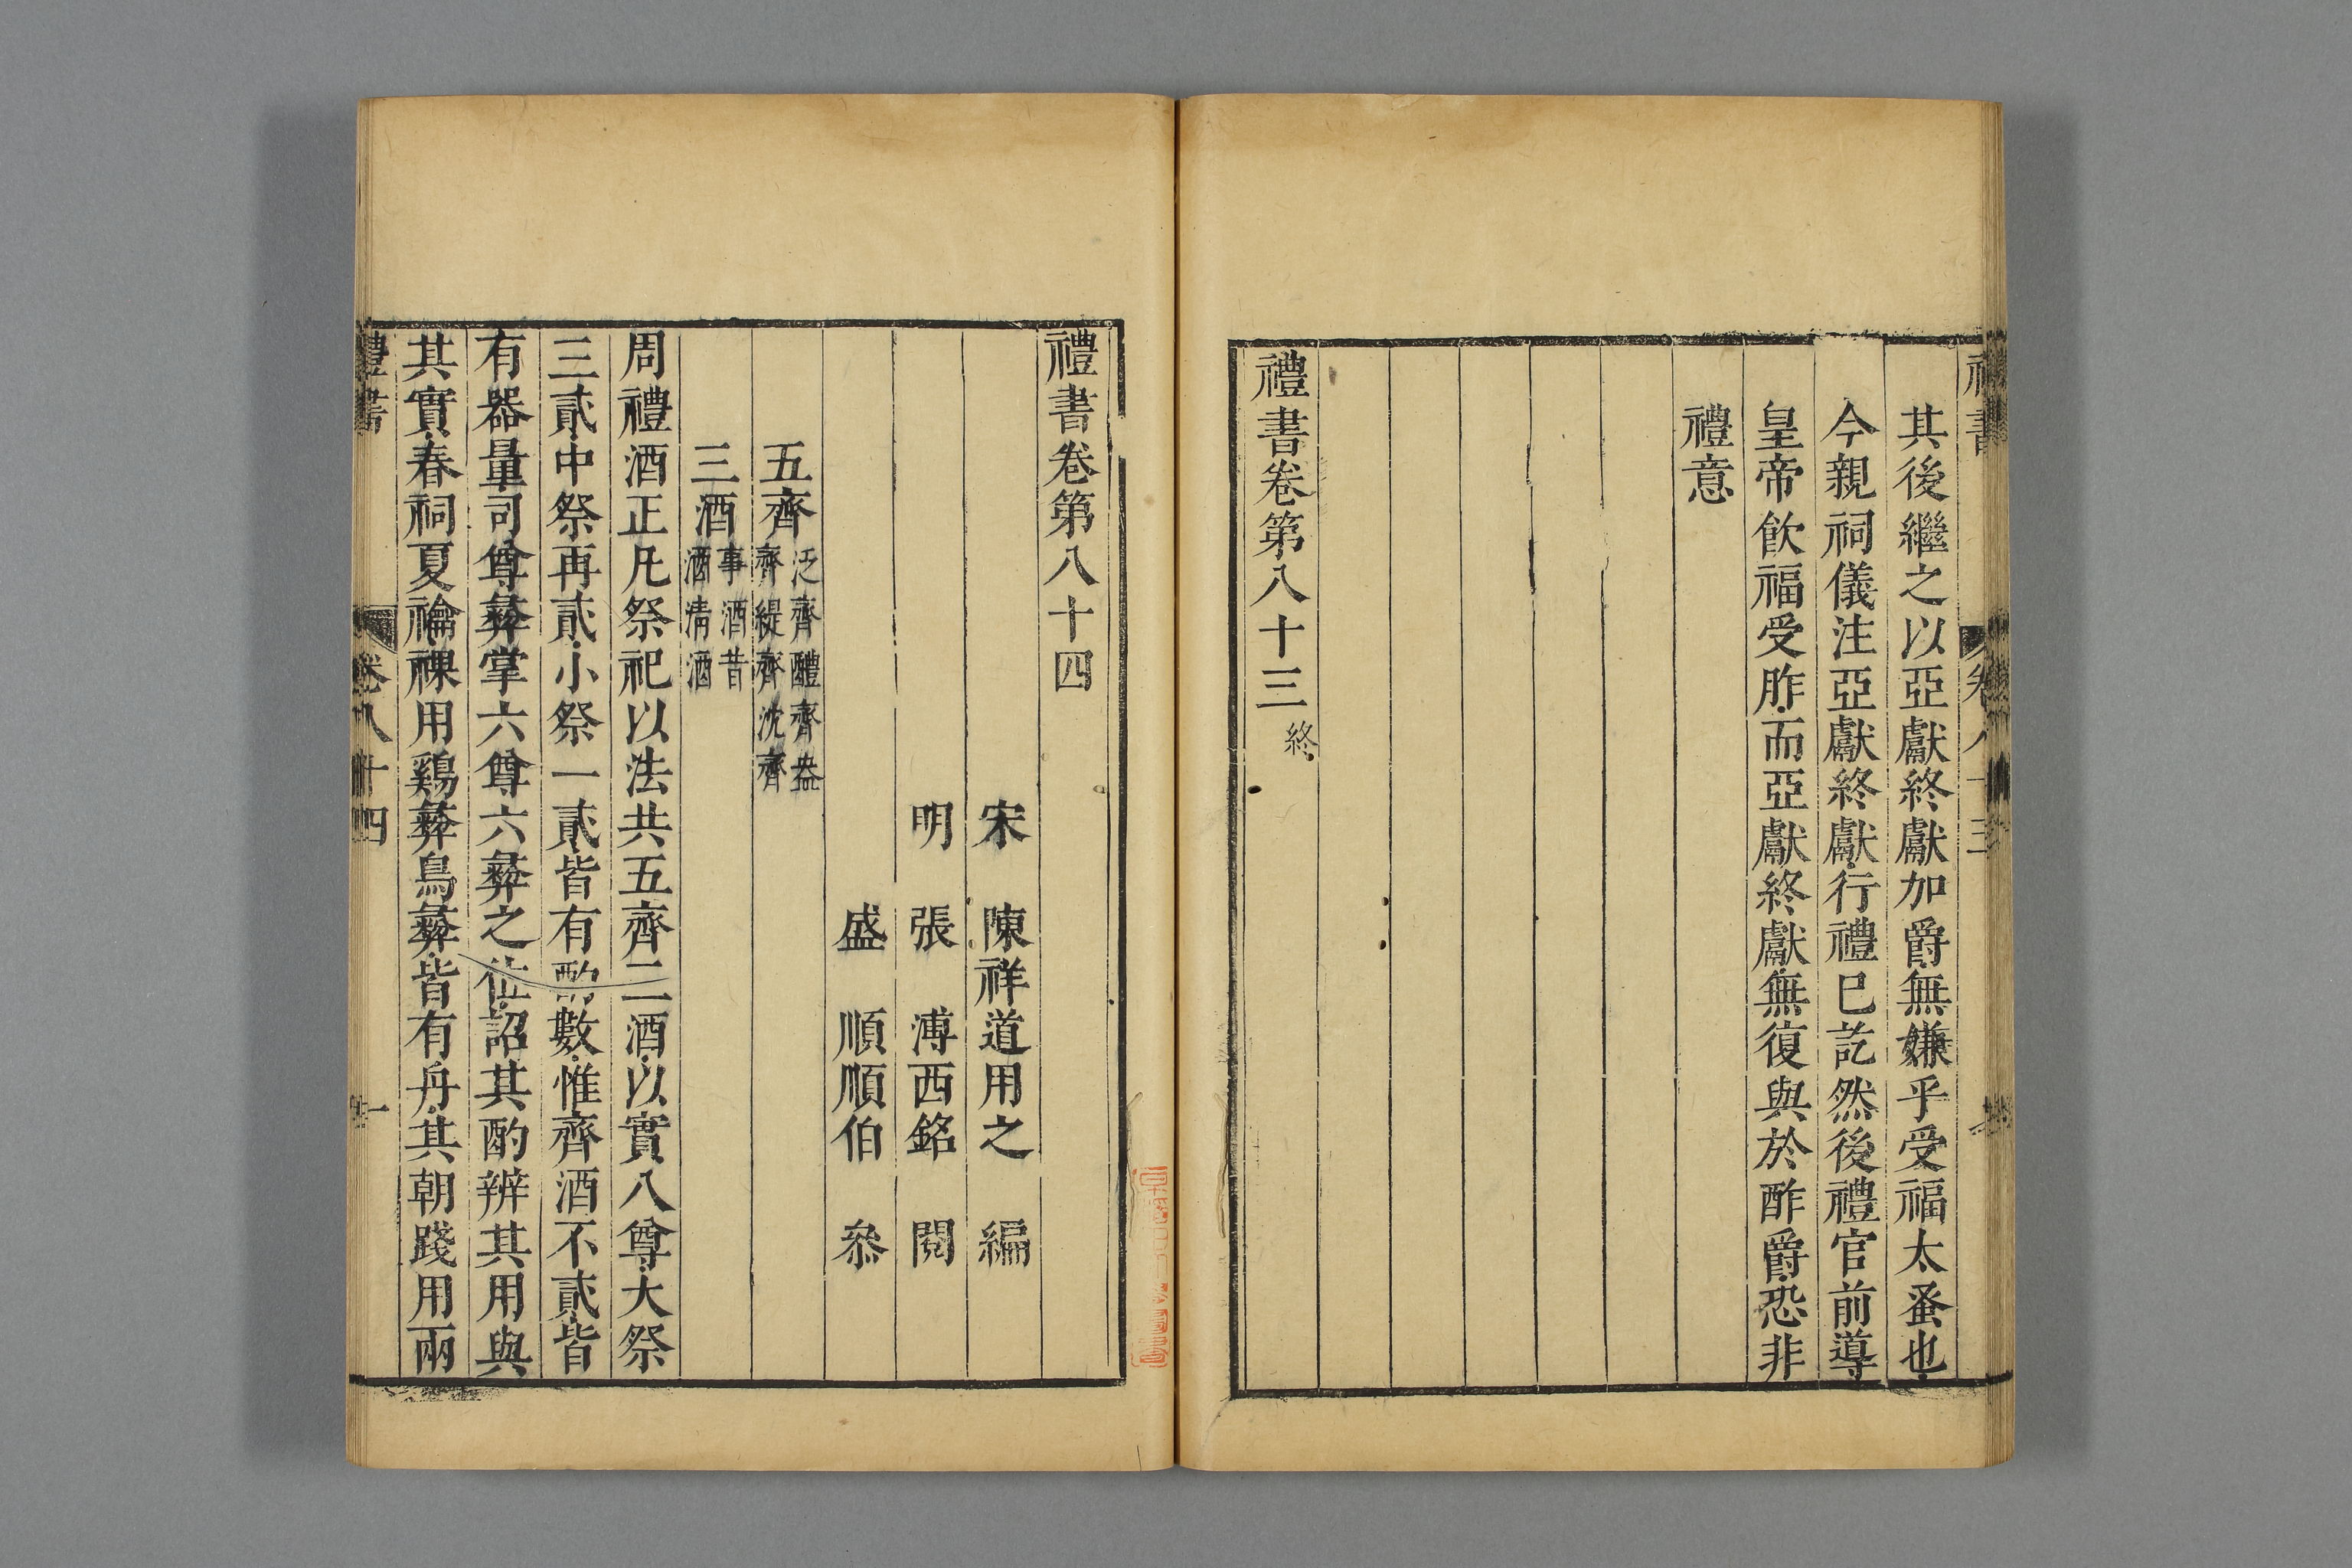 其後繼之以亞獻終獻加爵無嫌乎受福太蚤也
今親祠儀注亞獻終獻行禮巳訖然後禮官前導
皇帝飲福受胙而亞獻終獻無復與於酢爵恐非
禮意
禮書卷第八十三 終
禮書卷第八十四
宋 陳祥道用之 編
明 張 溥西銘 閱
盛 順順伯 叅
五齊 泛齊醴齊盎齊緹齊沈齊
三酒 事酒昔酒清酒
周禮酒正凡祭祀以法共五齊三酒以實八尊大祭
三貳中祭再貳小祭一貳皆有酌數惟齊酒不貳皆
有器量司尊彝掌六尊六彝之位詔其酌辨其用與
其實春祠夏禴祼用鷄彝鳥彝皆有舟其朝踐用兩
禮書 卷八十四 一